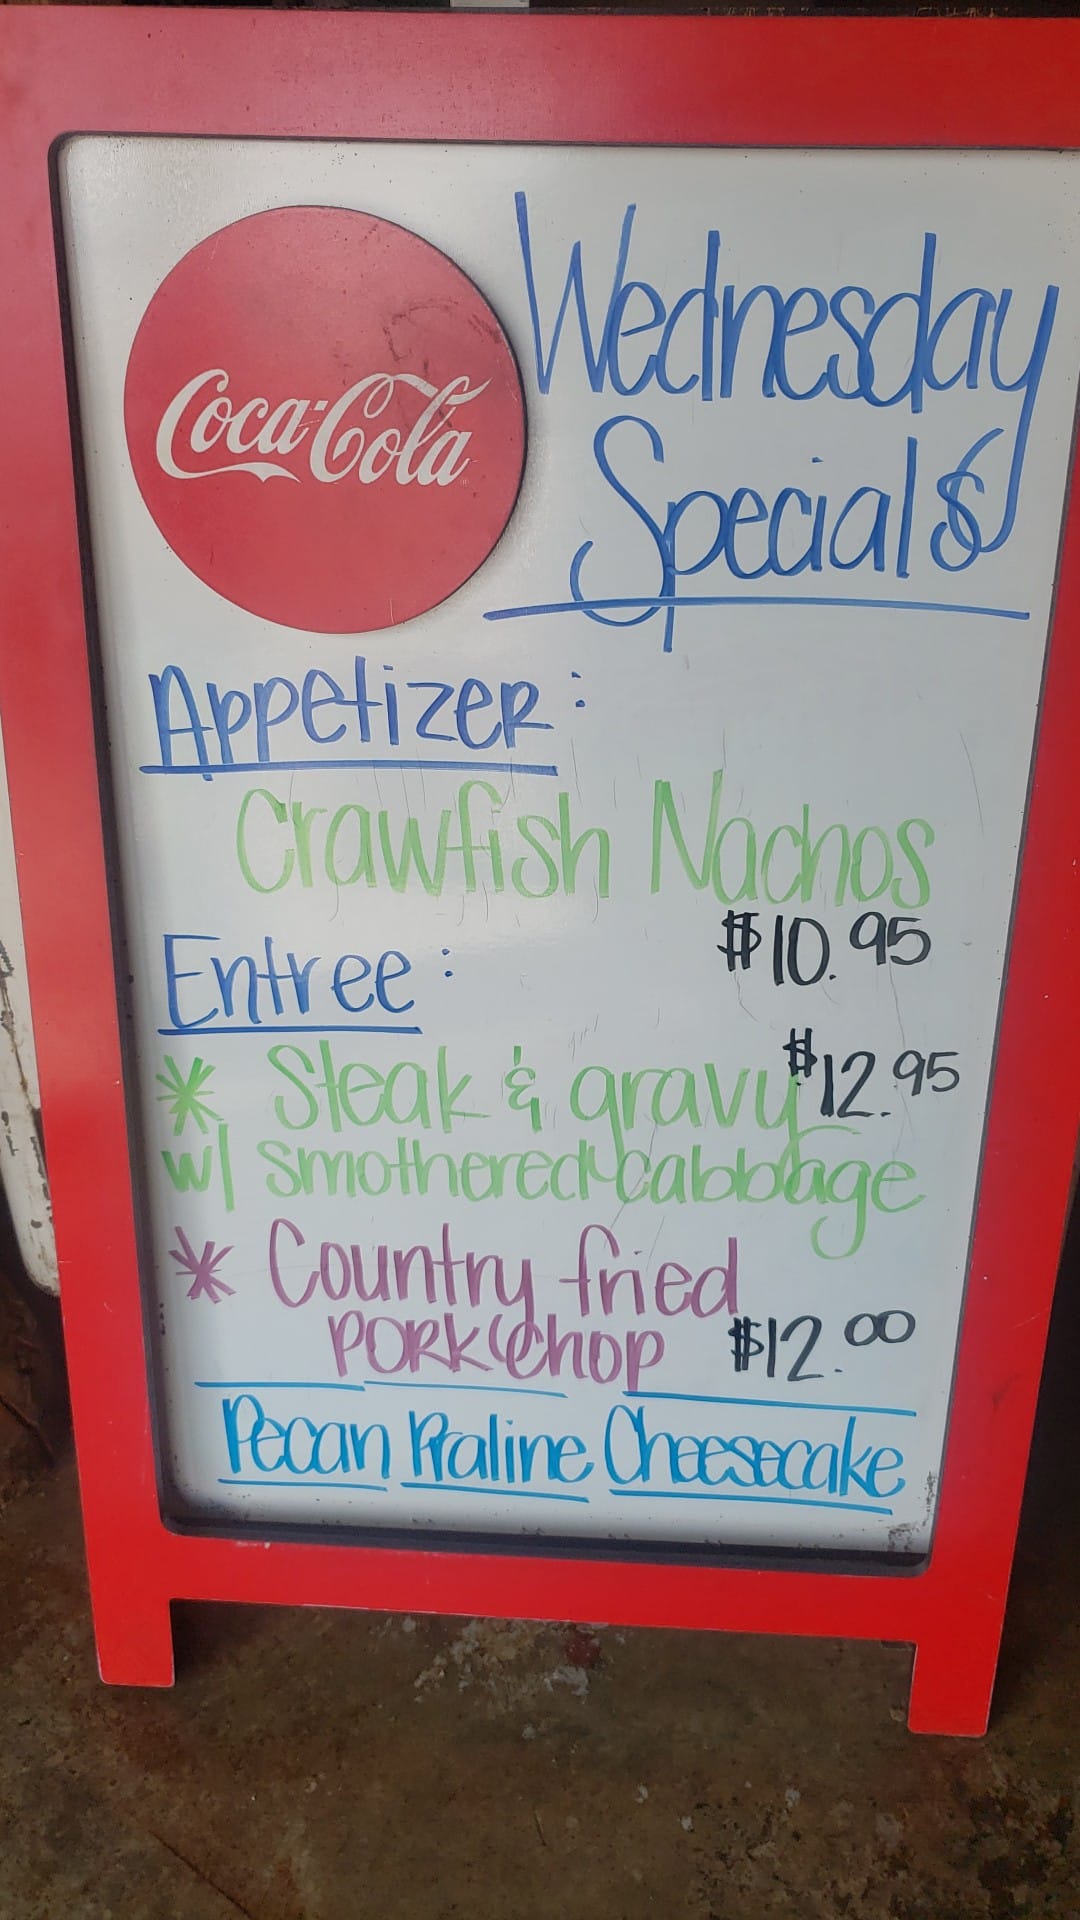 Coca-Cola
Wednesday
Specials
Appetizer:
Crawfish Nachos
$10.95
Entree:
* Steak & gravy $12.95
w/ smothered cabbage
* Country fried
PORK Chop $12.00
Pecan Praline Cheesecake